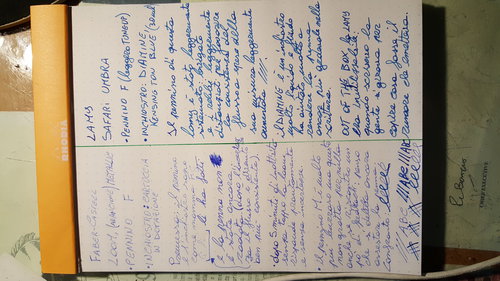 RHODIA
FABER-CASTELL
LOOM, (ARANCIONE) METALLIC
• PENNINO F
• INCHIOSTRO: CARTUCCIA
IN DOTAZIONE
Premessa: il pennino
e l'inchiostro sono
come mamma
li ha fatti
• la penna non
è stata ancora
rodata (dopo
il flusso è
ben più consistente).
• dopo 5 minuti di inattività
senza tappo la loom
risponde prontamente
e senza incertezze.
• il pennino M è molto
più questo
non gratta per nulla
anche se
po' di feedback: penso
che si debba ancora
assestare la penna.
ABC ABC ABC
LAMY
SAFARI UMBRA
• PENNINO F (leggero TUNEUP)
• INCHIOSTRO: DIAMINE,
KENSINGTON BLUE
Il pennino di questa
lamy è stato leggermente
sistemato:
e i rebbi leggermente
distanziati per favorire
la consistenza del
flusso a spese della
sua misura leggermente
aumentata
il DIAMINE è un inchiostro
molto liquido e fluido
ha aiutato molto a
rendere la penna
ancor più gradevole nella
scrittura.
OUT OF THE BOX, la LAMY
era inutilizzabile:
quando scrivevo la
gente si girava per
capire cosa fosse il
rumore che emetteva.